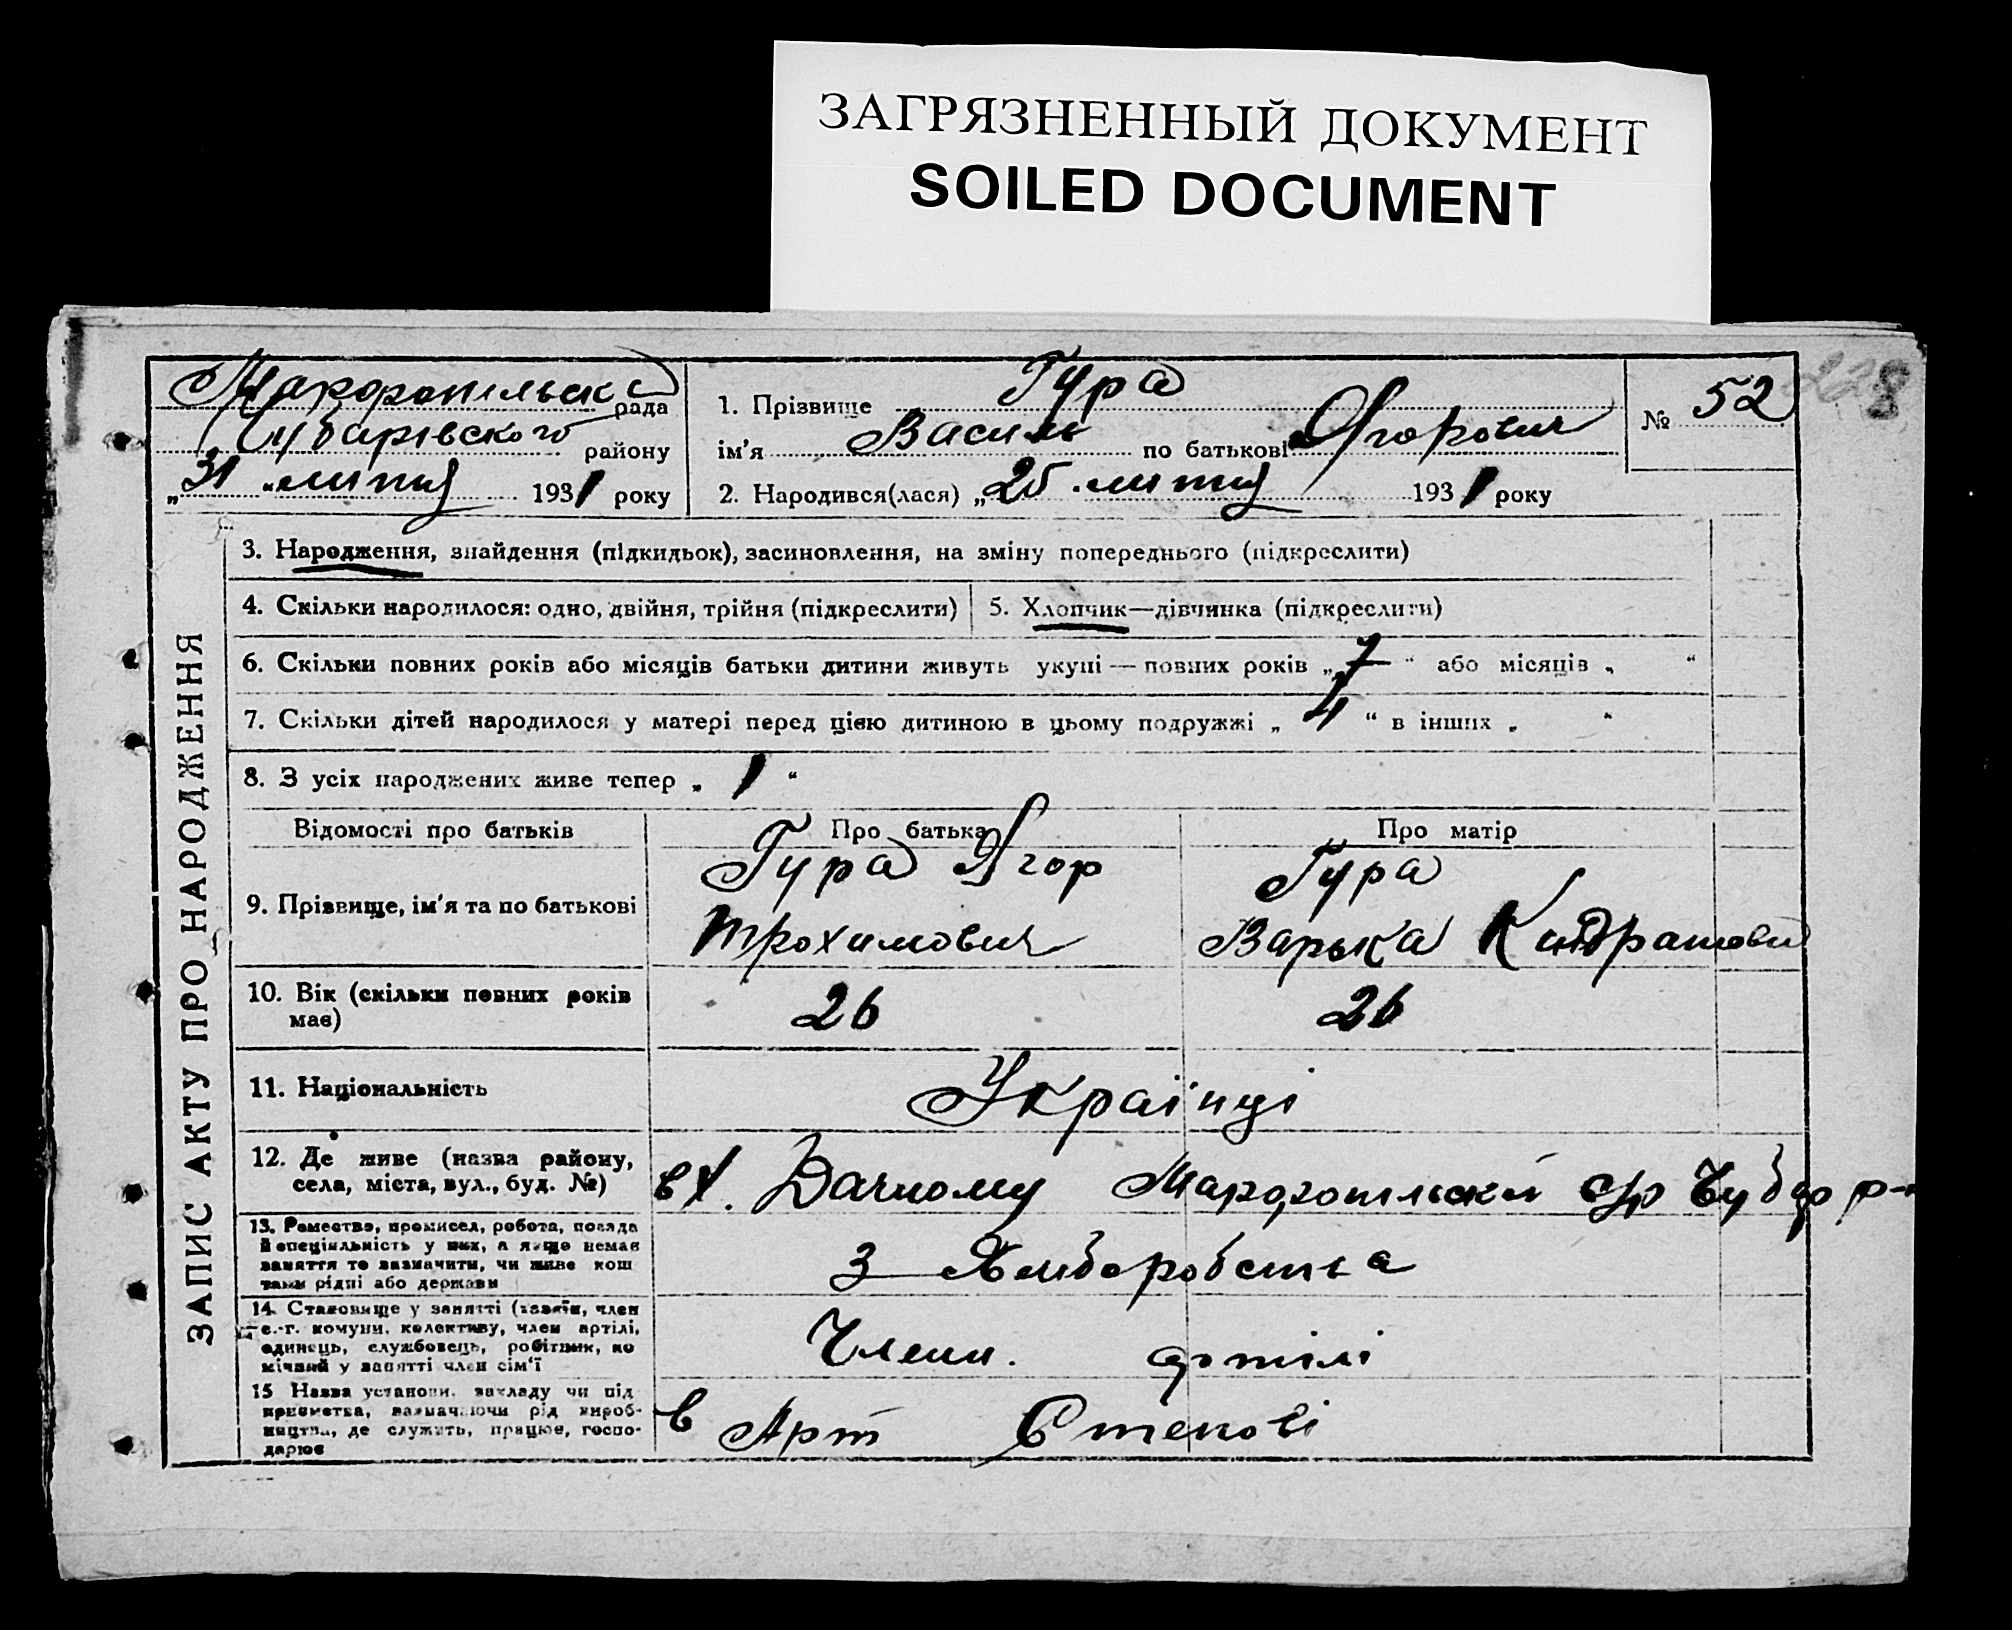 ЗАГРЯЗНЕННЫЙ ДОКУМЕНТ
SOILED DOCUMENT
рада
Чубарівского району
„31 „ липня 1931 року
1. Прізвище Гура
ім'я Василь по батькові Ягорович
2. Народився(лася) „25 липня 1931 року
№ 52
228
ЗАПИС АКТУ ПРО НАРОДЖЕННЯ
3. Народження, знайдення (підкидьок), засиновлення, на зміну попереднього (підкреслити)
4. Скільки народилося: одно, двійня, трійня (підкреслити)
5. Хлопчик—дівчинка (підкреслити)
6. Скільки повних років або місяців батьки дитини живуть укупі — повних років „ 7 “ або місяців „ “
7. Скільки дітей народилося у матері перед цією дитиною в цьому подружжі „ 4 “ в інших „ “
8. З усіх народжених живе тепер „ 1 “
Відомості про батьків
Про батька
Про матір
9. Прізвище, ім'я та по батькові
Гура Ягор
Трохимович
Гура
Варька
10. Вік (скільки повних років
має)
26
26
11. Національність
Українці
12. Де живе (назва району,
села, міста, вул., буд. №)
Дачному
13. Ремество, промисел, робота, посада
й спеціяльність у них, а якщо немає
заняття то зазначити, чи живе кош
тами рідні або держави
З Хліборобства
14. Становище у занятті (хазяїн, член
с.-г. комуни, колективу, член артілі,
одинець, службовець, робітник, по
мічний у занятті член сім'ї
Члени. артілі
15 Назва установи, закладу чи під
приємства, зазначаючи рід вироб-
ництва, де служить, працює, госпо-
дарює
в Арт Степові